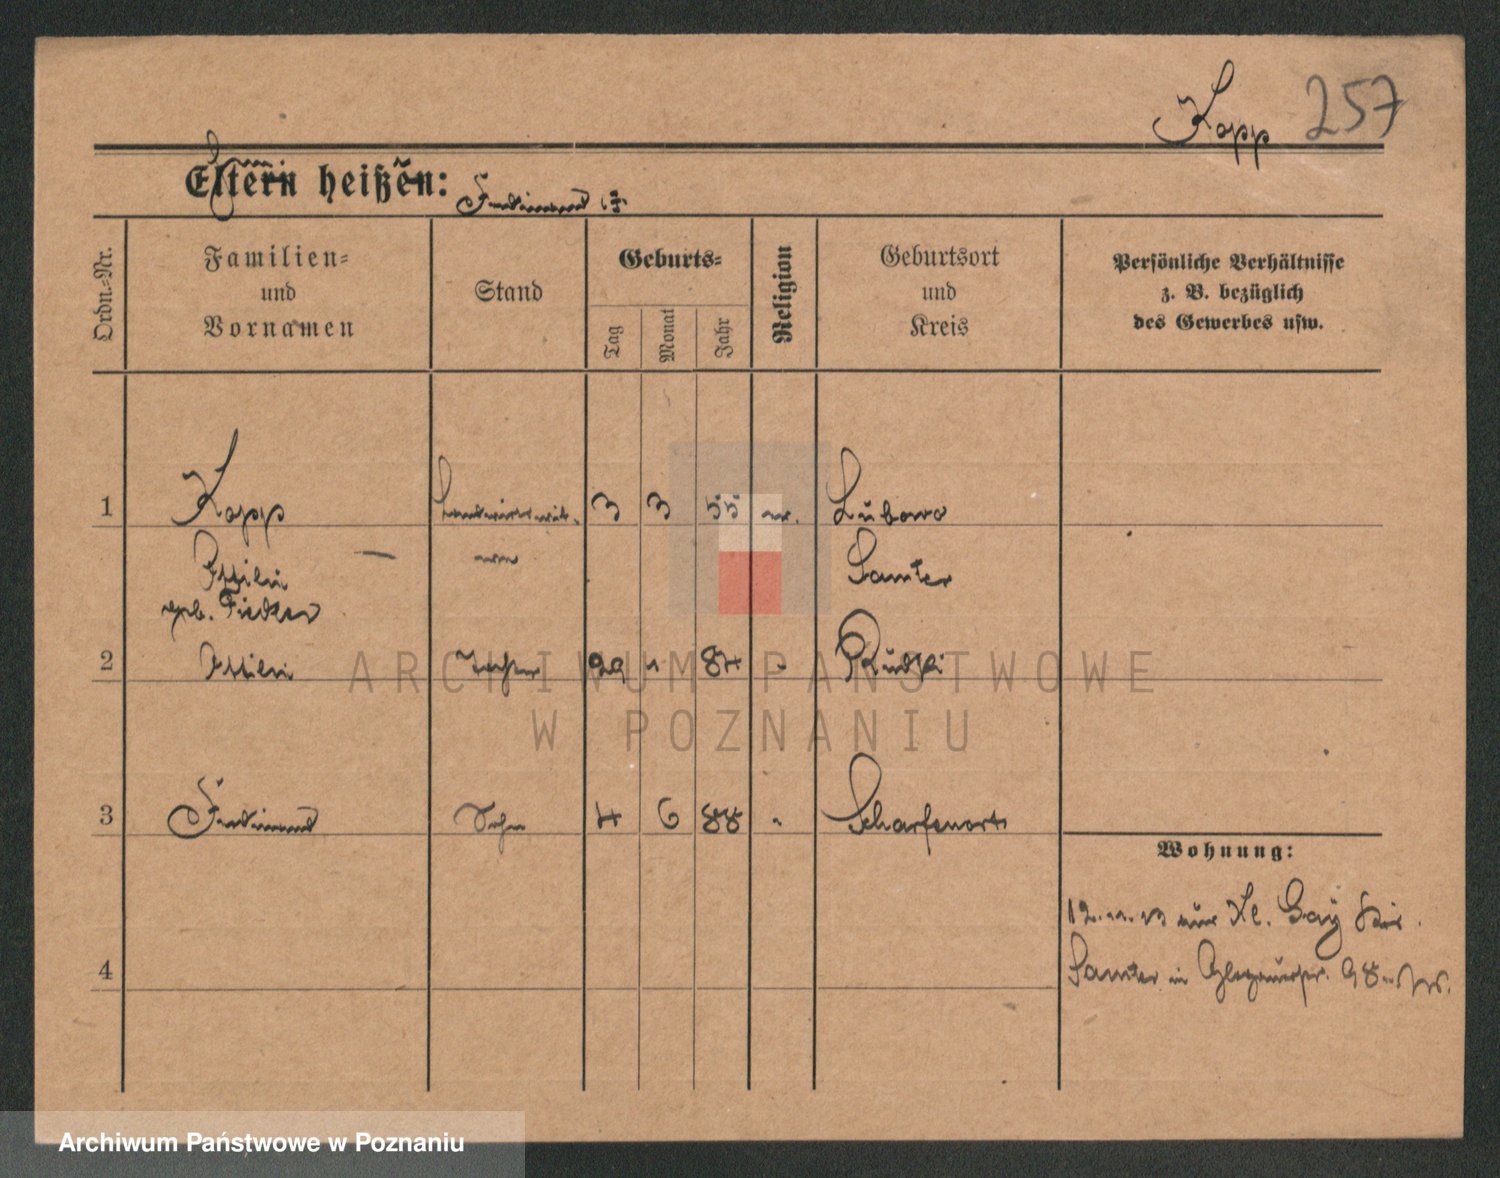 Kopp 257
Eltern heißen: Ferdinand
Ordn.-Nr.
Familien-
und
Vornamen
Stand
Geburts-
Tag
Monat
Jahr
Religion
Geburtsort
und
Kreis
Persönliche Verhältnisse
z. B. bezüglich
des Gewerbes usw.
1 Kopp 3 3 55 ev. Lubowo
Ottilie Samter
geb. Fiedler
2 Ottilie Tochter 29 84 " Rudki
3 Ferdinand Sohn 4 6 88 " Scharfenort
Wohnung:
Kl. Gay
4 Samter in
ARCHIWUM PAŃSTWOWE
W POZNANIU
Archiwum Państwowe w Poznaniu